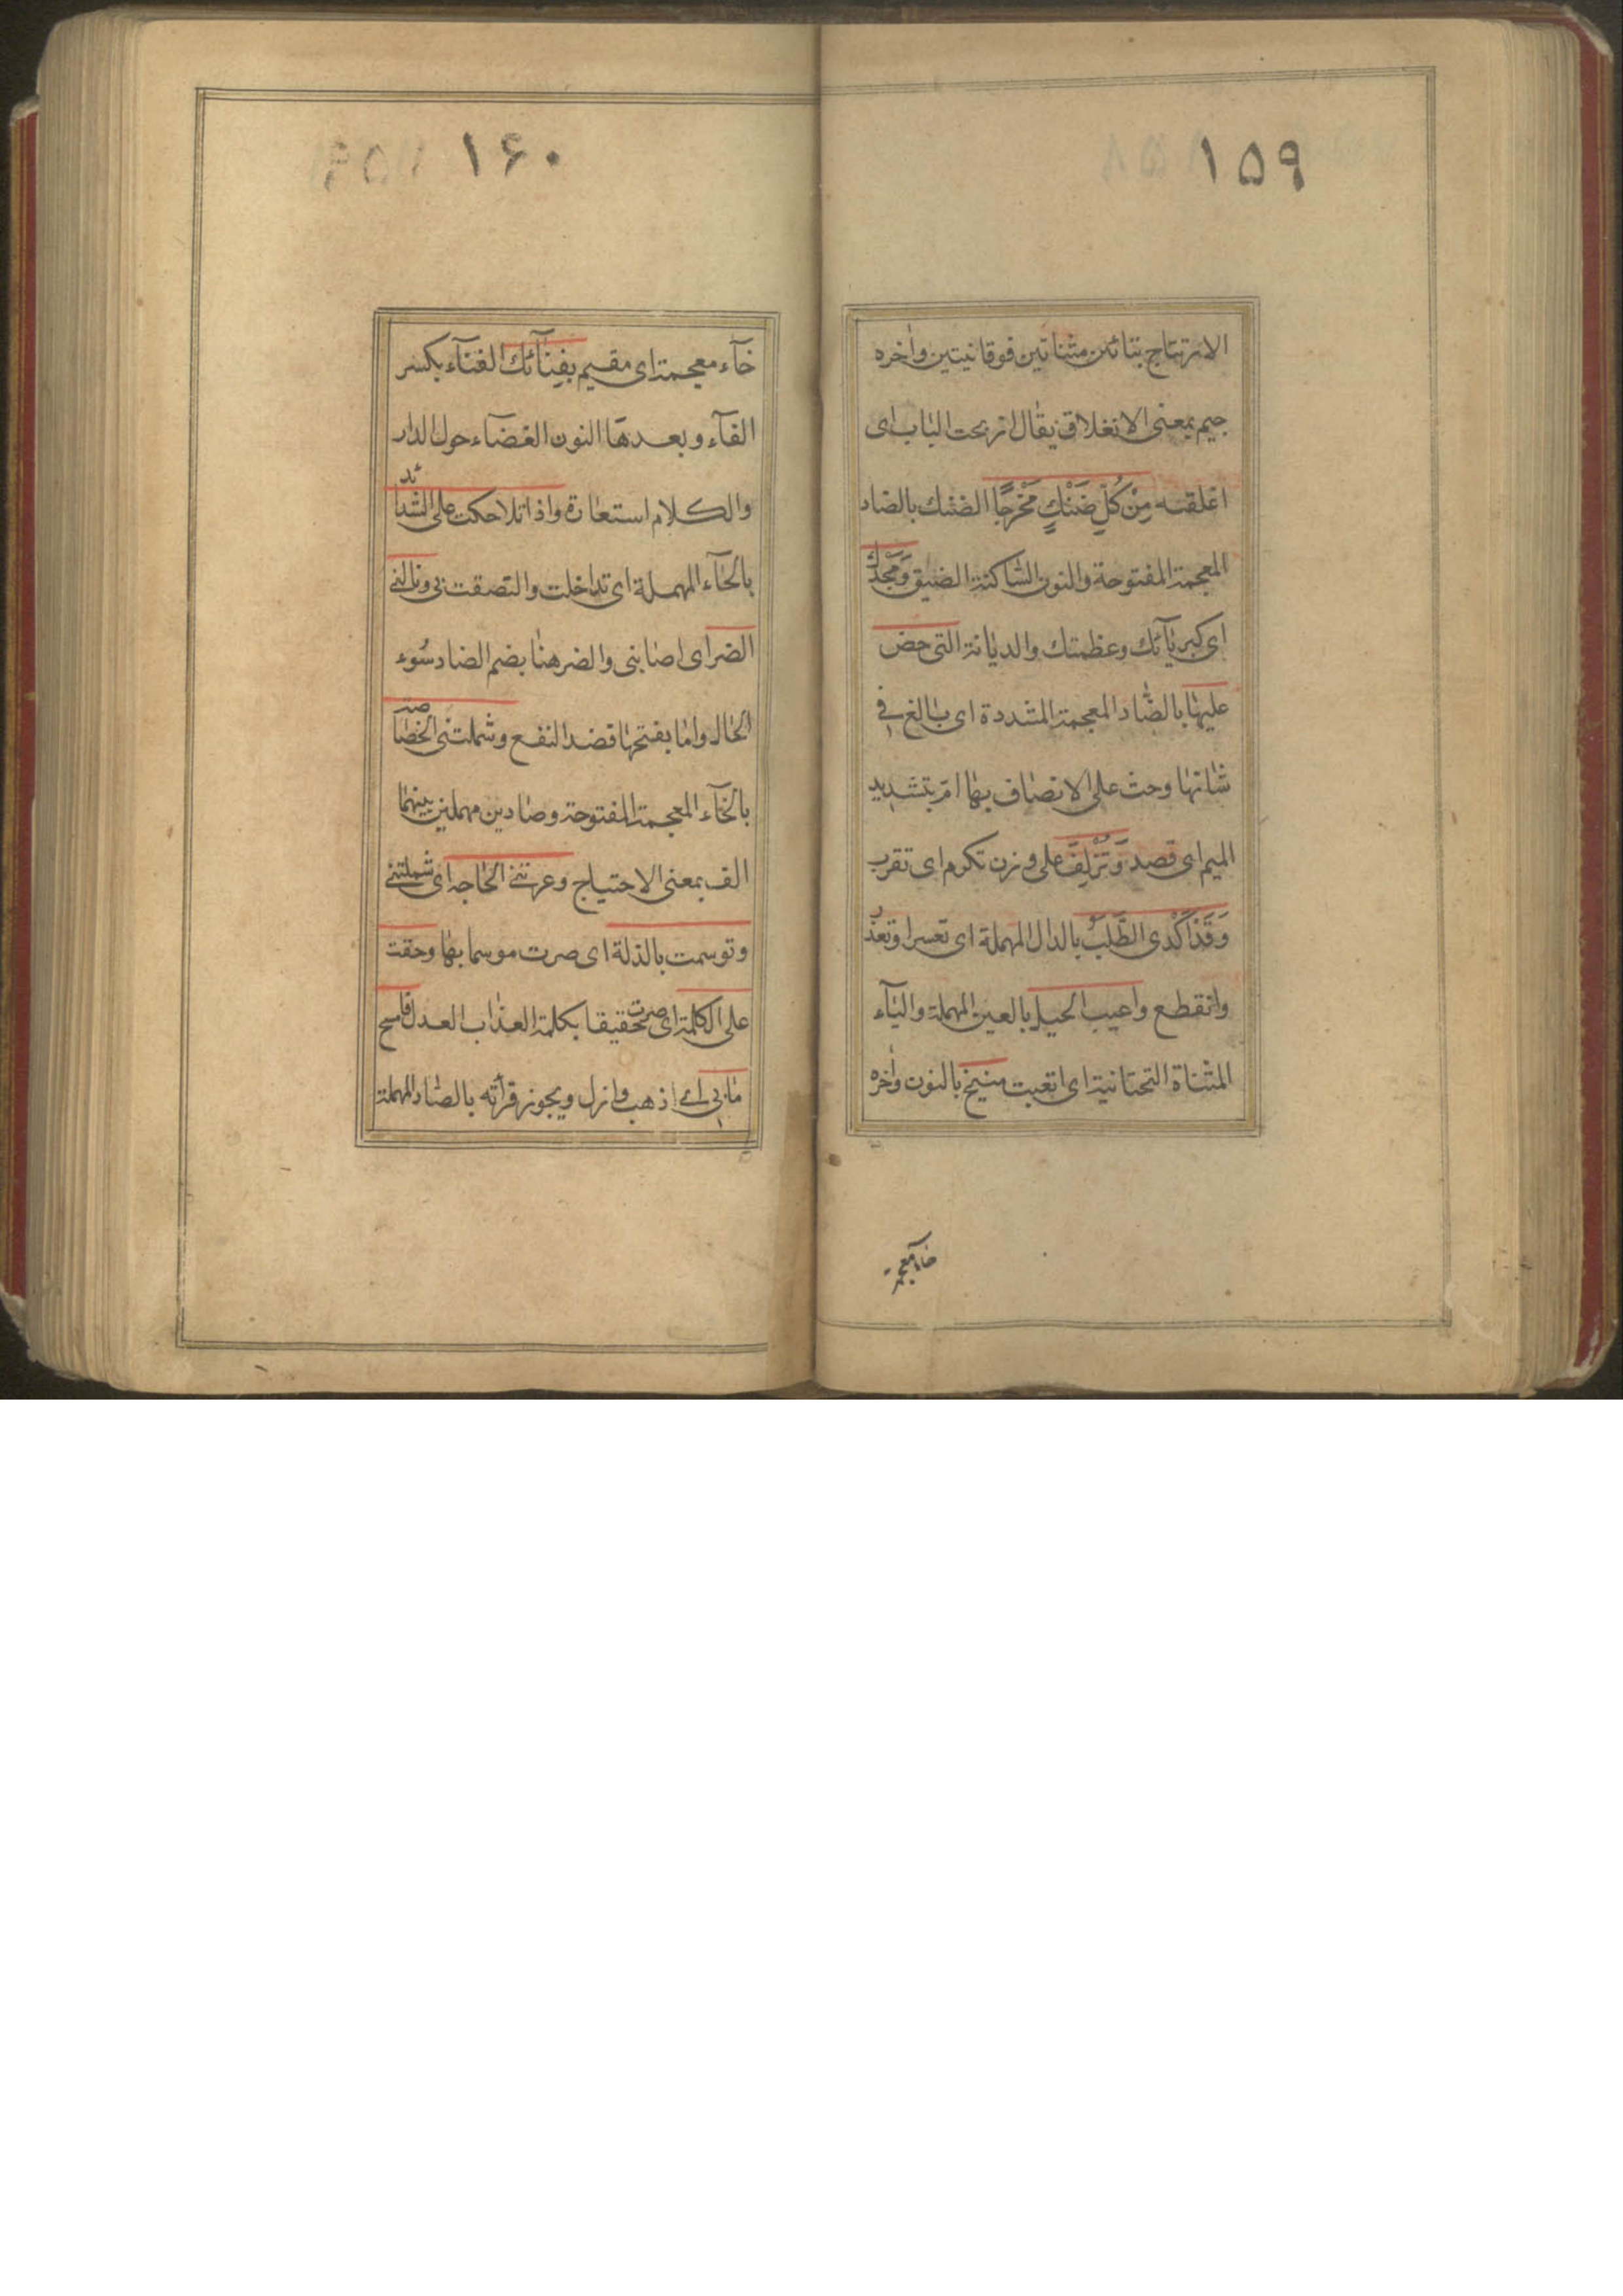 ١۵٩
الارتتاج بتائين مثناتين فوقانيتين واخره
جيم بمعنى الانغلاق يقال ارتجت الباب اى
اغلقته مِنْ كُلِّ ضَنْكٍ مَخْرَجًا الضنك بالضاد
المعجمة المفتوحة والنون الساكنة الضيق وَمَجْدِكَ
اى كبريآئك وعظمتك والديانة التى حض
عليها بالضاد المعجمة المشددة اى بالغ فى
شانها وحث على الاتصاف بها امّ بتشديد
الميم اى قصد وَتُزْلِفَ على وزن تكرم اى تقرب
وَقَدْ اَكْدَى الطَّلَبُ بالدال المهملة اى تعسر وتعذر
وانقطع واعيت الحيل بالعين المهملة واليآء
المثناة التحتانية اى اتعبت منيخ بالنون واخره
خاء معجمة
١۶٠
خآء معجمة اى مقيم بفِنآئك الفنآء بكسر
الفآء وبعدها النون الفضآء حول الدار
والكلام استعارة واذا تلاحكت على الشدائد
بالحآء المهملة اى تداخلت والتصقت بى ونالنى
الضر اى اصابنى والضر هنا بضم الضاد سُوء
الحال واما بفتحها فضد النفع وشملتنى الخصاصة
بالخآء المعجمة المفتوحة وصادين مهملين بينهما
الف بمعنى الاحتياج وعرتنى الحاجه اى شملتنى
وتوسمت بالذلة اى صرت موسما بها وحقت
على الكلمة اى صرت حقيقا بكلمة العذاب العدل فامسح
ما بى اى اذهب وازل ويجوز قرأته بالصاد المهملة